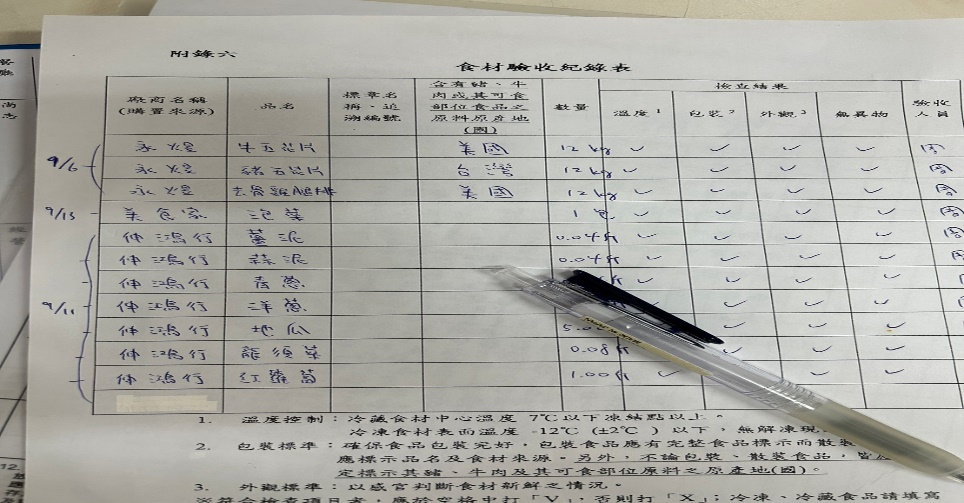 附錄六
食材驗收紀錄表
廠商名稱(購買來源) 品名 標章名稱、追溯編號 含有豬、牛肉或其可食部位食品之原料原產地(國) 數量 檢查結果 溫度1 包裝2 外觀3 無異物 驗收人員
9/6
永煌 牛五花片 美國 12 kg ✓ ✓ ✓ ✓ 周
永煌 豬五花片 台灣 12 kg ✓ ✓ ✓ ✓ 周
永煌 去骨雞腿排 美國 12 kg ✓ ✓ ✓ ✓ 周
9/13
美食家 泡菜 1 ✓ ✓ ✓ ✓ 周
9/11
仲鴻行 薑泥 ✓ ✓ ✓ ✓ 周
仲鴻行 蒜泥 ✓ ✓ ✓ ✓ 周
仲鴻行 青蔥 ✓ ✓ ✓ 周
仲鴻行 洋蔥 ✓ ✓ ✓
仲鴻行 地瓜 ✓ ✓ ✓
仲鴻行 龍須菜 ✓ ✓ ✓
仲鴻行 紅蘿蔔 ✓ ✓ ✓ ✓
1. 溫度控制：冷藏食材中心溫度 7℃以下凍結點以上。
冷凍食材表面溫度 -12℃ (±2℃ ) 以下，無解凍現
2. 包裝標準：確保食品包裝完好，包裝食品應有完整食品標示而散裝
應標示品名及食材來源。另外，不論包裝、散裝食品，皆應
定標示其豬、牛肉及其可食部位原料之原產地(國)。
3. 外觀標準：以感官判斷食材新鮮之情況。
※符合檢查項目者，應於空格中打「V」，否則打「X」；冷凍、冷藏食品請填寫